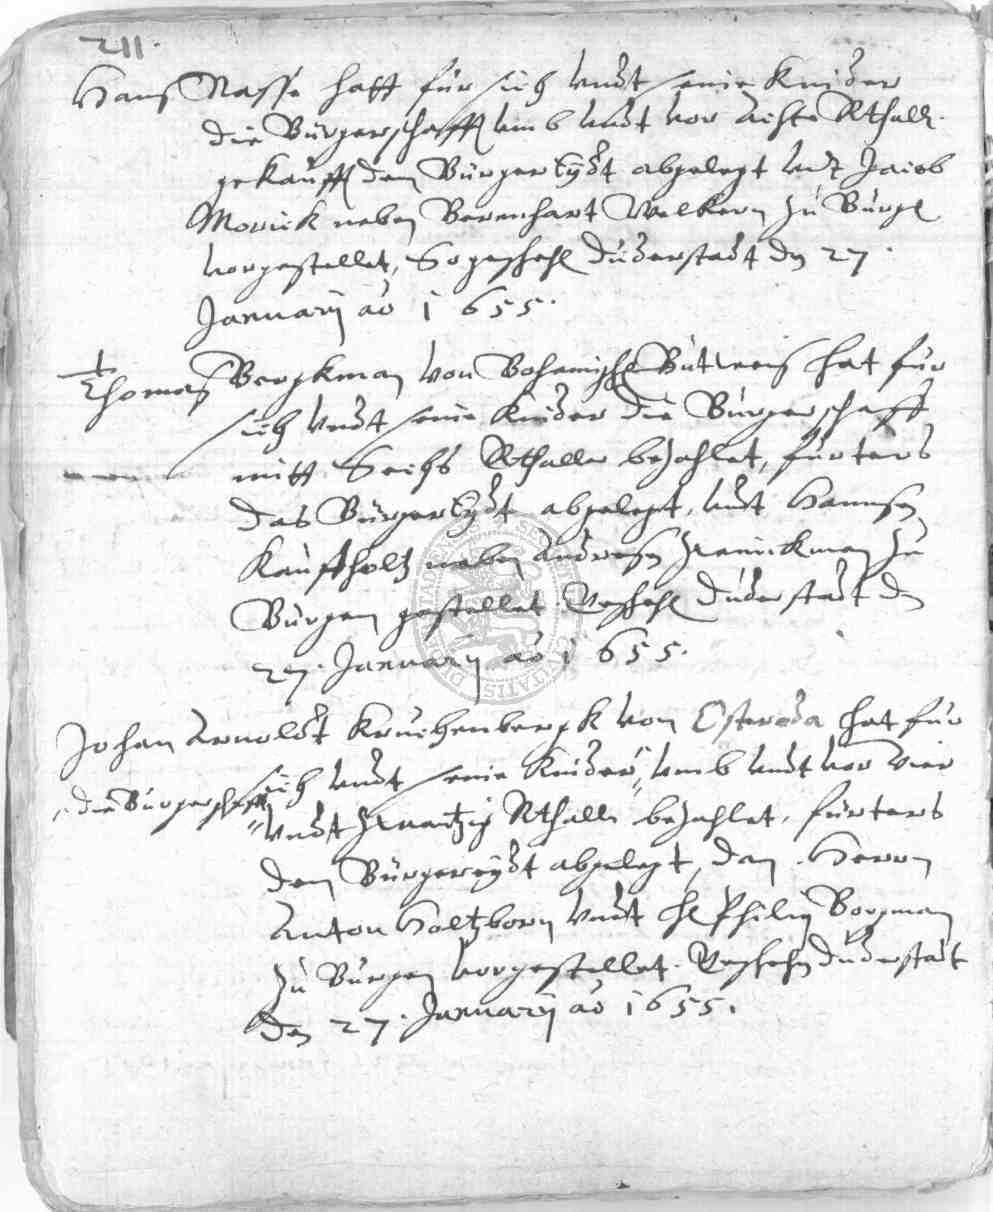 211.
Hans Nasse hatt für sich undt seine Kinder
die Bürgerschafft umb undt vor achte Rthall.
gekaufft den Bürger Eÿdt abgelegt undt Jacob
Morick neben Berenhart Welkern zu Bürgen
vorgestellet, So geschehen Duderstadt den 27.
Januarij ao 1655.
Thomas Bergkman von Bohemische Butweis hat für
sich undt seine Kinder die Bürgerschafft
mitt Sechs Rthaller bezahlet, fürters
das Bürger Eÿdt abgelegt, undt Hannsen
Kauffholtz neben Andresen zu
Bürgen gestellet. Geschehen Duderstadt den
27. Januarij ao 1655.
Johan Arnoldt Kruchenbergk von Osteroda hat für
sich undt seine Kinder umb undt vor vier
die Bürgerschafft
undt zwantzig Rthall. bezahlet, fürters
den Bürgereÿdt abgelegt, den Herrn
Anton Holtzborn undt H. Philip Borgman
zu Bürgen vorgestellet. Geschehen Duderstadt
den 27. Januarij ao 1655.